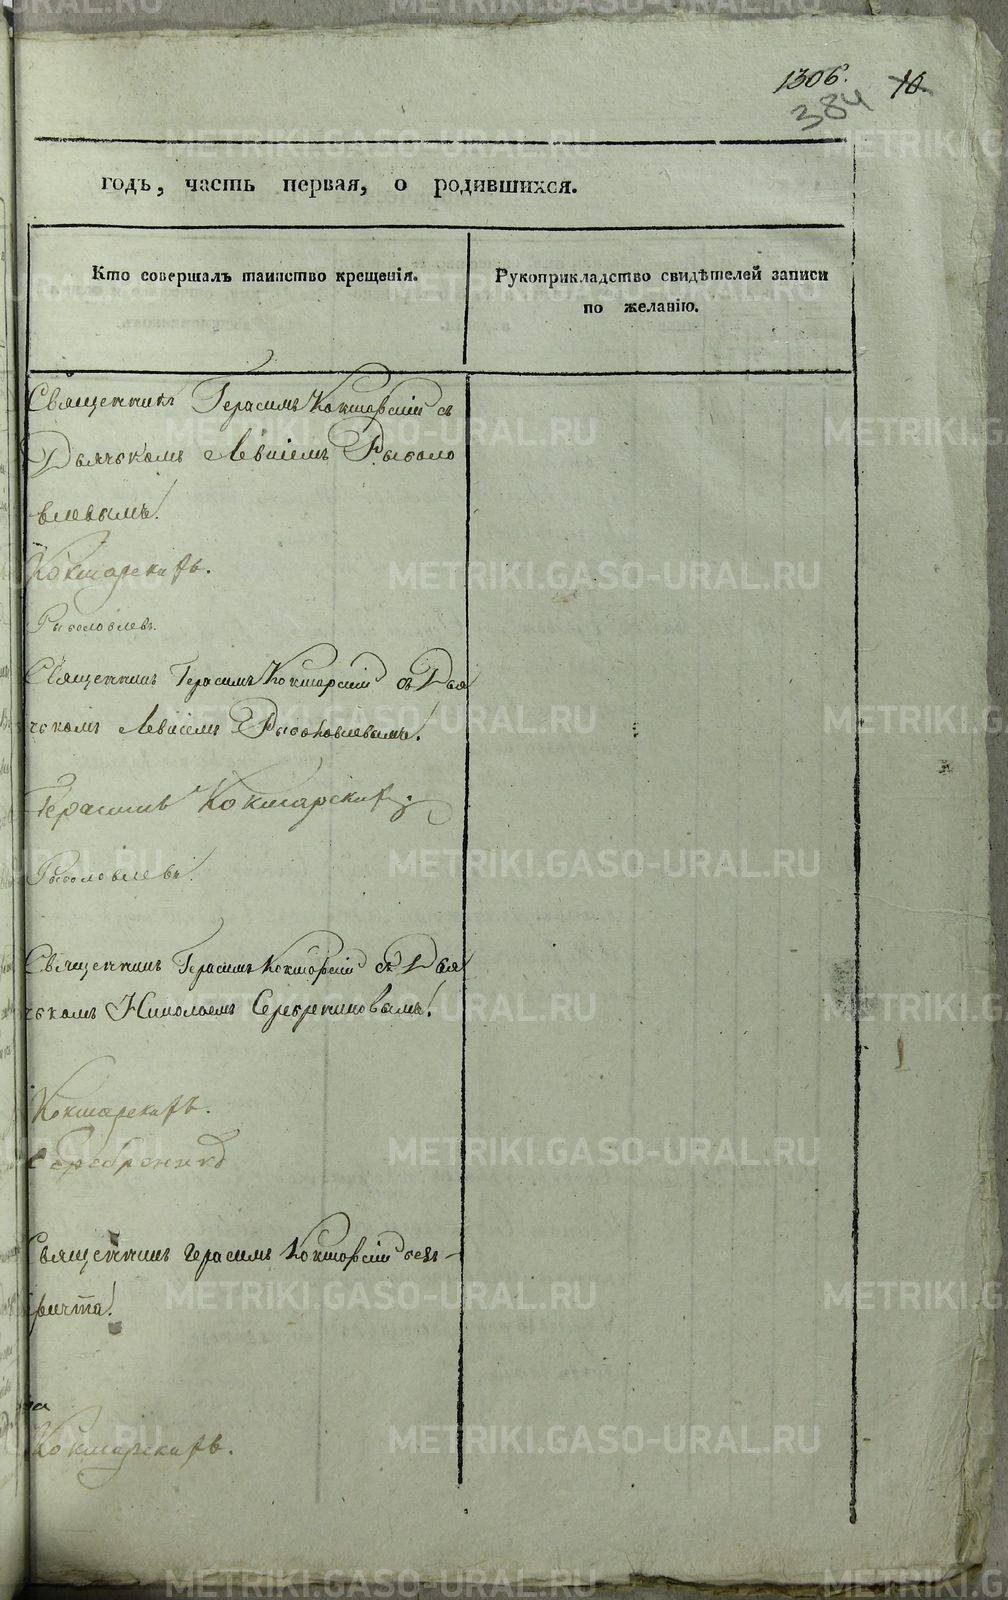 1306. 10.
384
годъ, часть первая, о родившихся.
Кто совершалъ таинство крещенія.
Рукоприкладство свидѣтелей записи
по желанію.
Священникъ Герасимъ Кокшарскій съ
Дьячькомъ Евсіемъ Рыболо
влевымъ!
Кокшарскій.
Рыболовлевъ.
Священникъ Герасимъ Кокшарскій съ Дья
чькомъ Евсіемъ Рыболовлевымъ!
Герасимъ Кокшарскій.
Рыболовлевъ.
Священникъ Герасимъ Кокшарскій съ Дья
чькомъ Николаемъ Серебренниковымъ!
Кокшарскій.
Священникъ Герасимъ Кокшарскій безъ
причта!
Кокшарскій.
METRIKI.GASO-URAL.RU